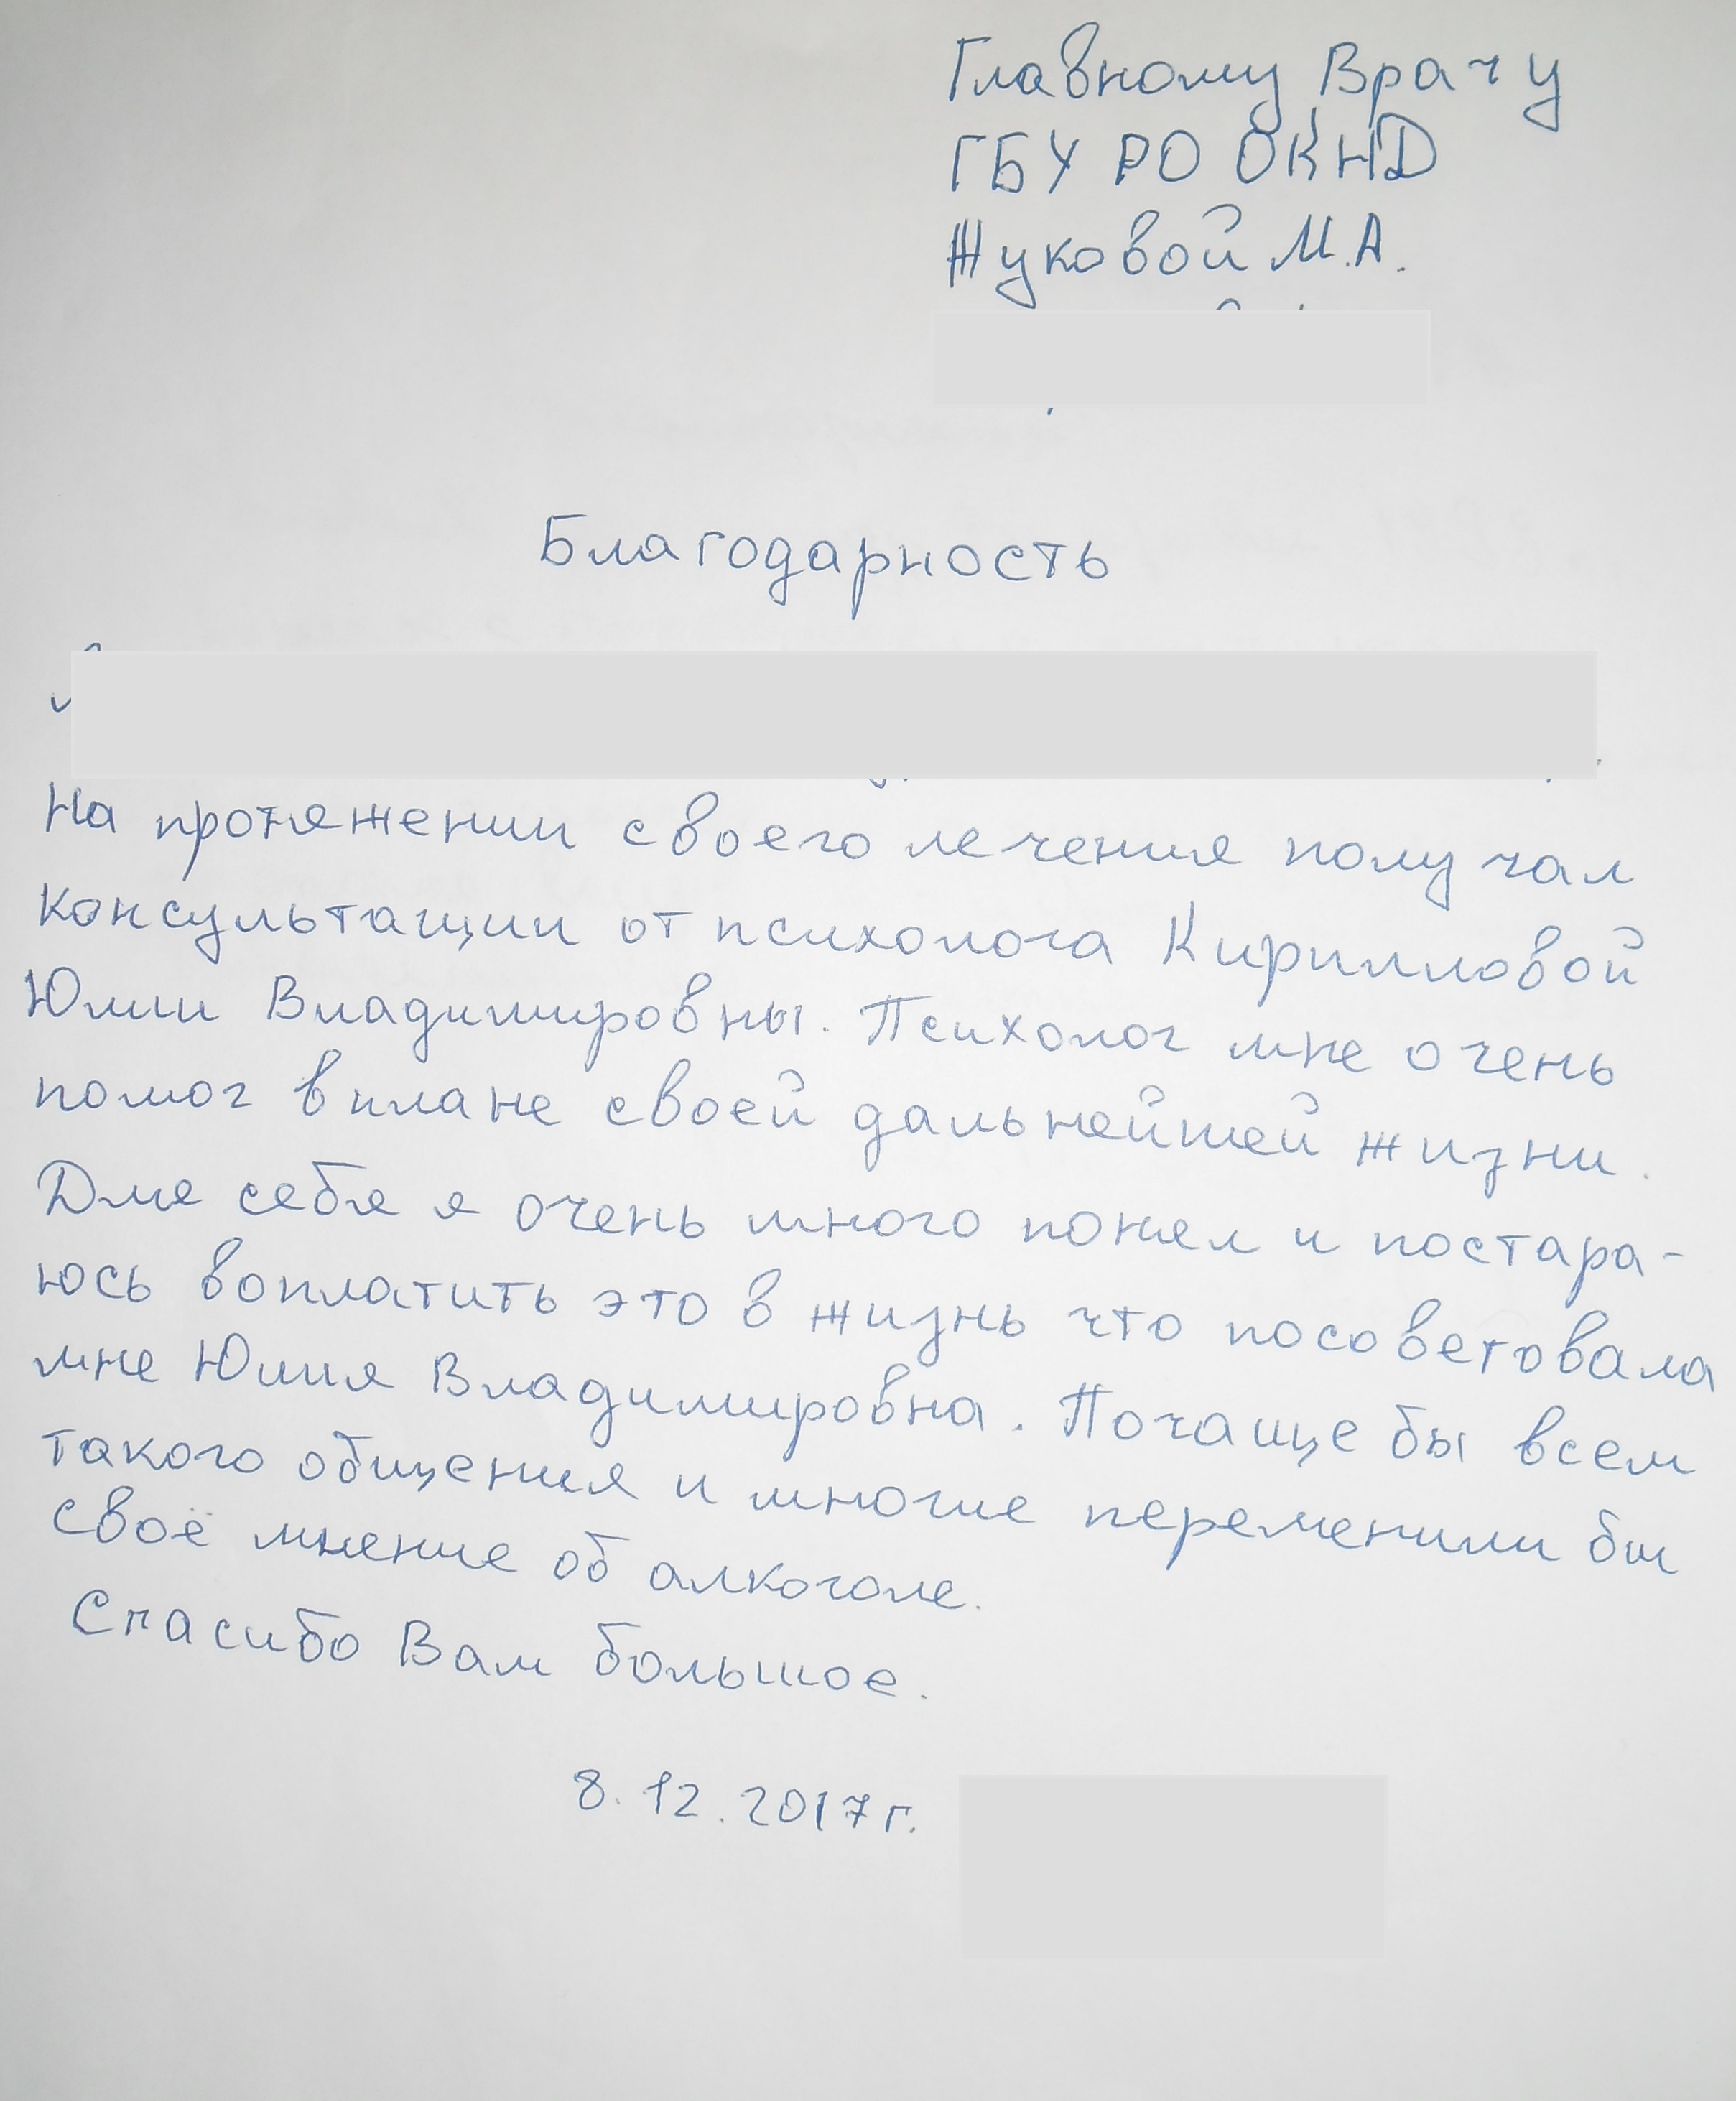 Главному Врачу
ГБУ РО ОКНД
Жуковой М.А.
Благодарность
На протяжении своего лечения получал
консультации от психолога Кирилловой
Юлии Владимировны. Психолог мне очень
помог в плане своей дальнейшей жизни.
Для себя я очень много понял и постара-
юсь воплатить это в жизнь что посоветовала
мне Юлия Владимировна. Почаще бы всем
такого общения и многие переменили бы
своё мнение об алкоголе.
Спасибо Вам большое.
8.12.2017г.